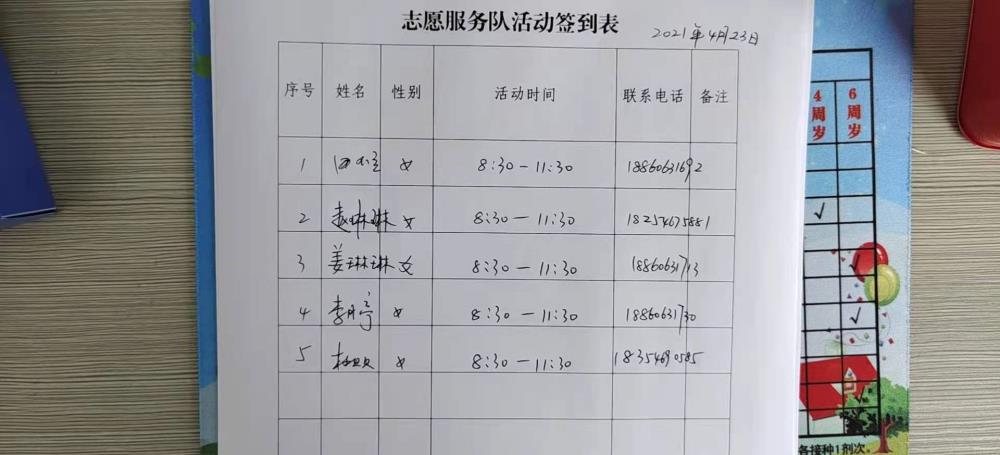 志愿服务队活动签到表
2021年4月23日
序号 姓名 性别 活动时间 联系电话 备注
1 女 8:30-11:30 18860631692
2 赵琳琳 女 8:30-11:30 18254675881
3 姜琳琳 女 8:30-11:30 18860631713
4 李月亭 女 8:30-11:30 18860631730
5 女 8:30-11:30 18354690585
4周岁 6周岁
各接种1剂次。